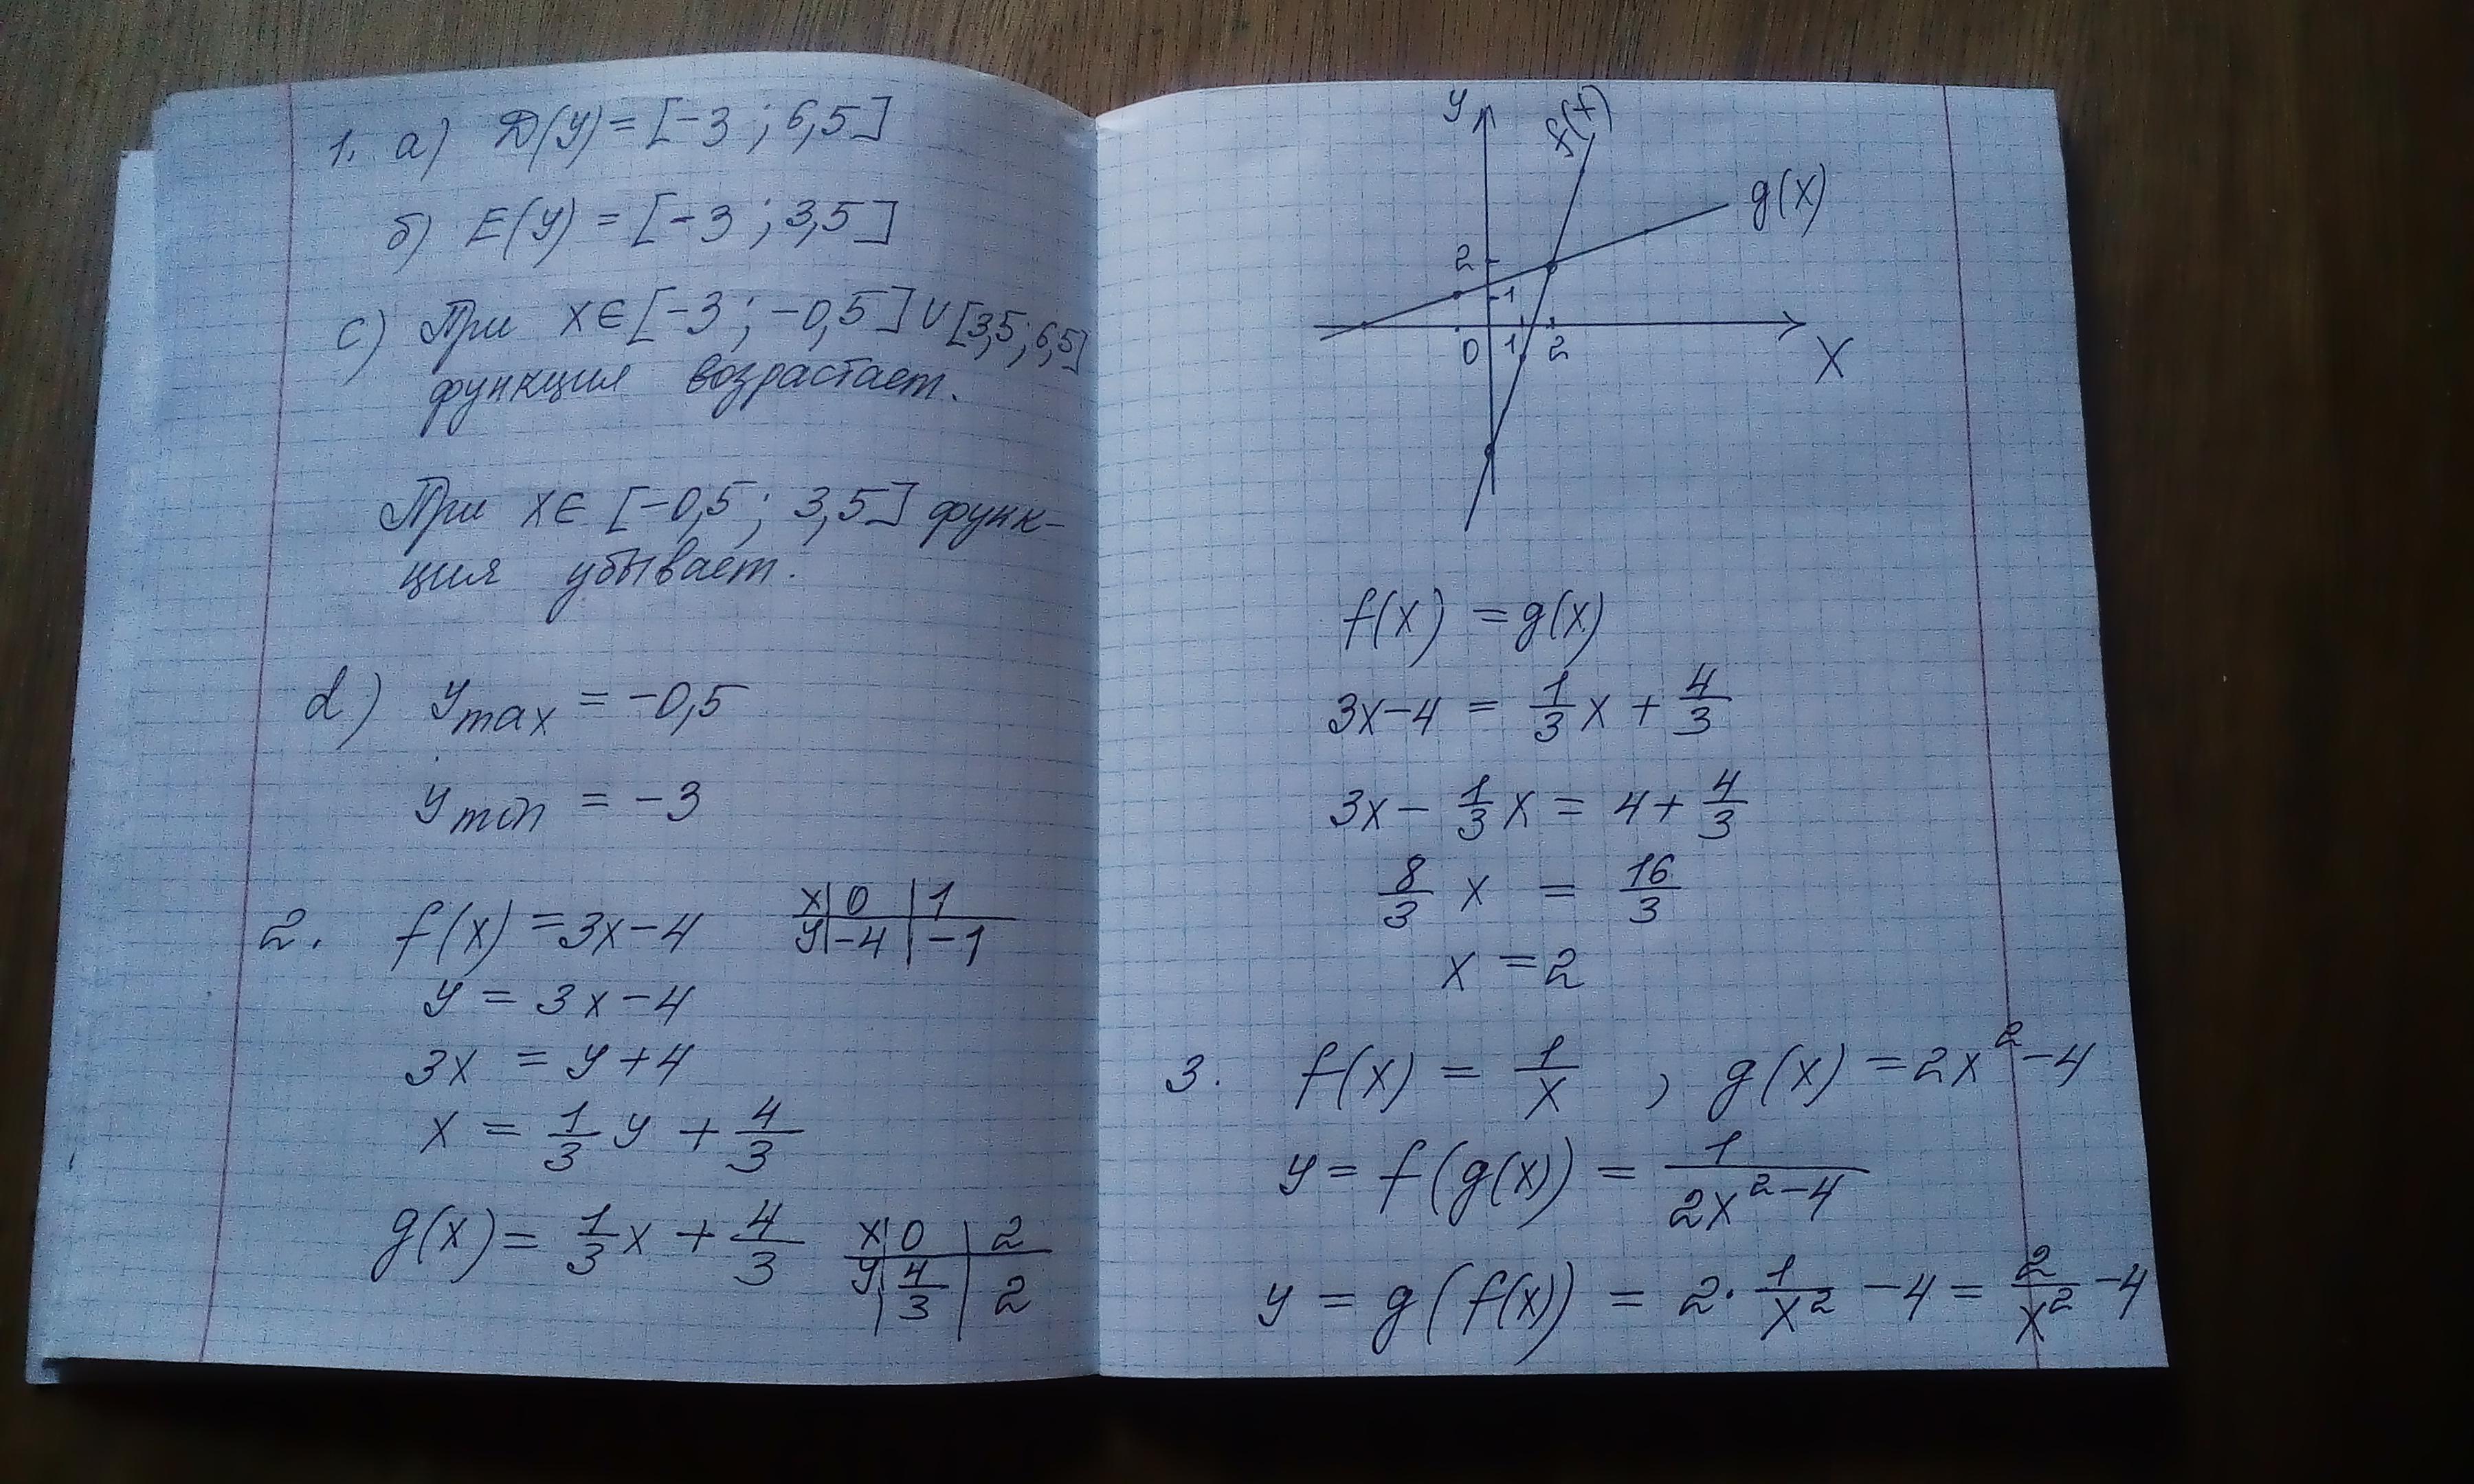 1. а) D(y) = [-3 ; 6,5]
б) E(y) = [-3 ; 3,5]
c) При x ∈ [-3 ; -0,5] ∪ [3,5 ; 6,5]
функция возрастает.
При x ∈ [-0,5 ; 3,5] функ-
ция убывает.
d) y max = -0,5
y min = -3
2. f(x) = 3x-4
x | 0 | 1
y | -4 | -1
y = 3x-4
3x = y+4
x = 1/3 y + 4/3
g(x) = 1/3 x + 4/3
x | 0 | 2
y | 4/3 | 2
y
f(x)
g(x)
2
1
0 1 2
X
f(x) = g(x)
3x-4 = 1/3 x + 4/3
3x - 1/3 x = 4 + 4/3
8/3 x = 16/3
x = 2
3. f(x) = 1/x , g(x) = 2x²-4
y = f(g(x)) = 1/(2x²-4)
y = g(f(x)) = 2·1/x² -4 = 2/x² -4